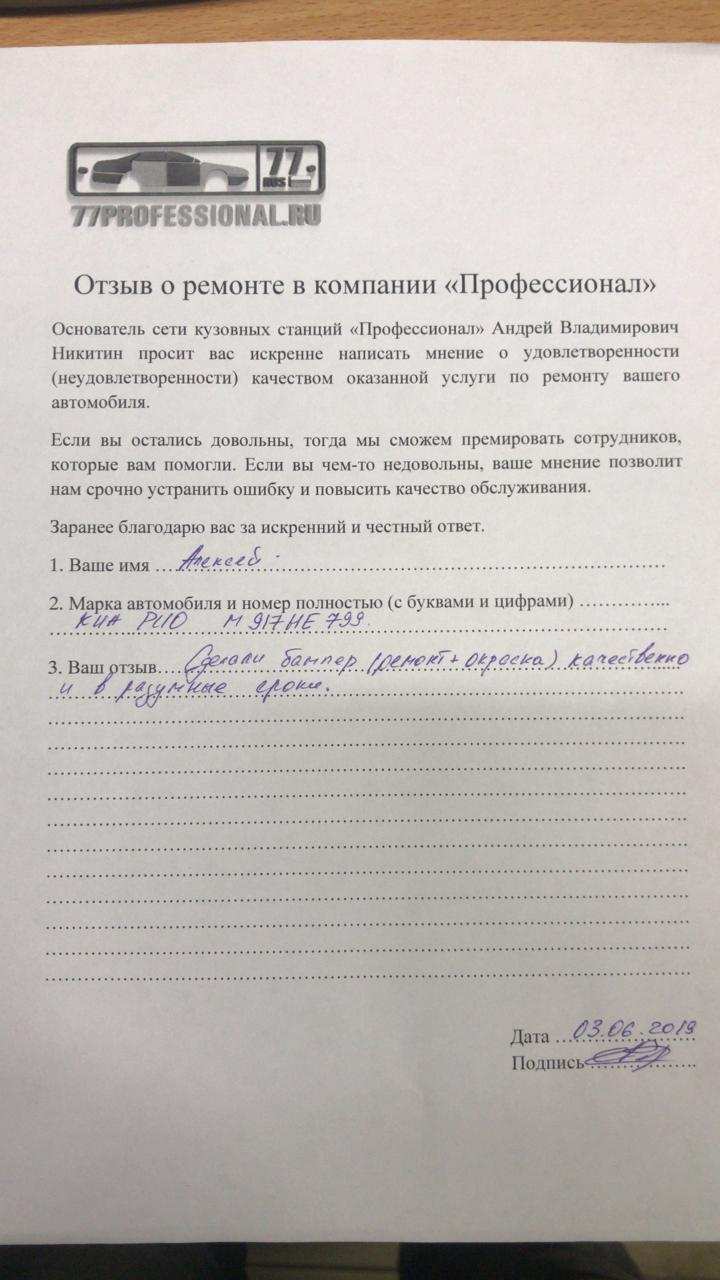 77
RUS
77PROFESSIONAL.RU
Отзыв о ремонте в компании «Профессионал»
Основатель сети кузовных станций «Профессионал» Андрей Владимирович
Никитин просит вас искренне написать мнение о удовлетворенности
(неудовлетворенности) качеством оказанной услуги по ремонту вашего
автомобиля.
Если вы остались довольны, тогда мы сможем премировать сотрудников,
которые вам помогли. Если вы чем-то недовольны, ваше мнение позволит
нам срочно устранить ошибку и повысить качество обслуживания.
Заранее благодарю вас за искренний и честный ответ.
1. Ваше имя Алексей
2. Марка автомобиля и номер полностью (с буквами и цифрами)
КИА РИО М 917 НЕ 799.
3. Ваш отзыв Сделали бампер (ремонт + окраска) качественно
и в разумные сроки.
Дата 03.06.2019
Подпись